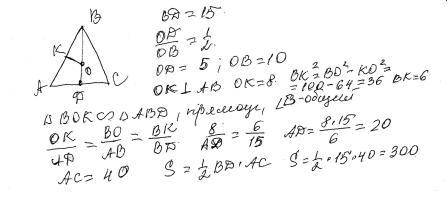 B
K
O
A
C
D
BD = 15.
OD/OB = 1/2
OD = 5; OB = 10
OK ⊥ AB OK = 8. BK² = BO² - KO² =
= 100 - 64 = 36 BK = 6
△ BOK ∽ △ ABD, прямоуг, ∠B - общий
OK/AD = BO/AB = BK/BD 8/AD = 6/15 AD = 8·15/6 = 20
AC = 40 S = 1/2 BD · AC S = 1/2 · 15 · 40 = 300